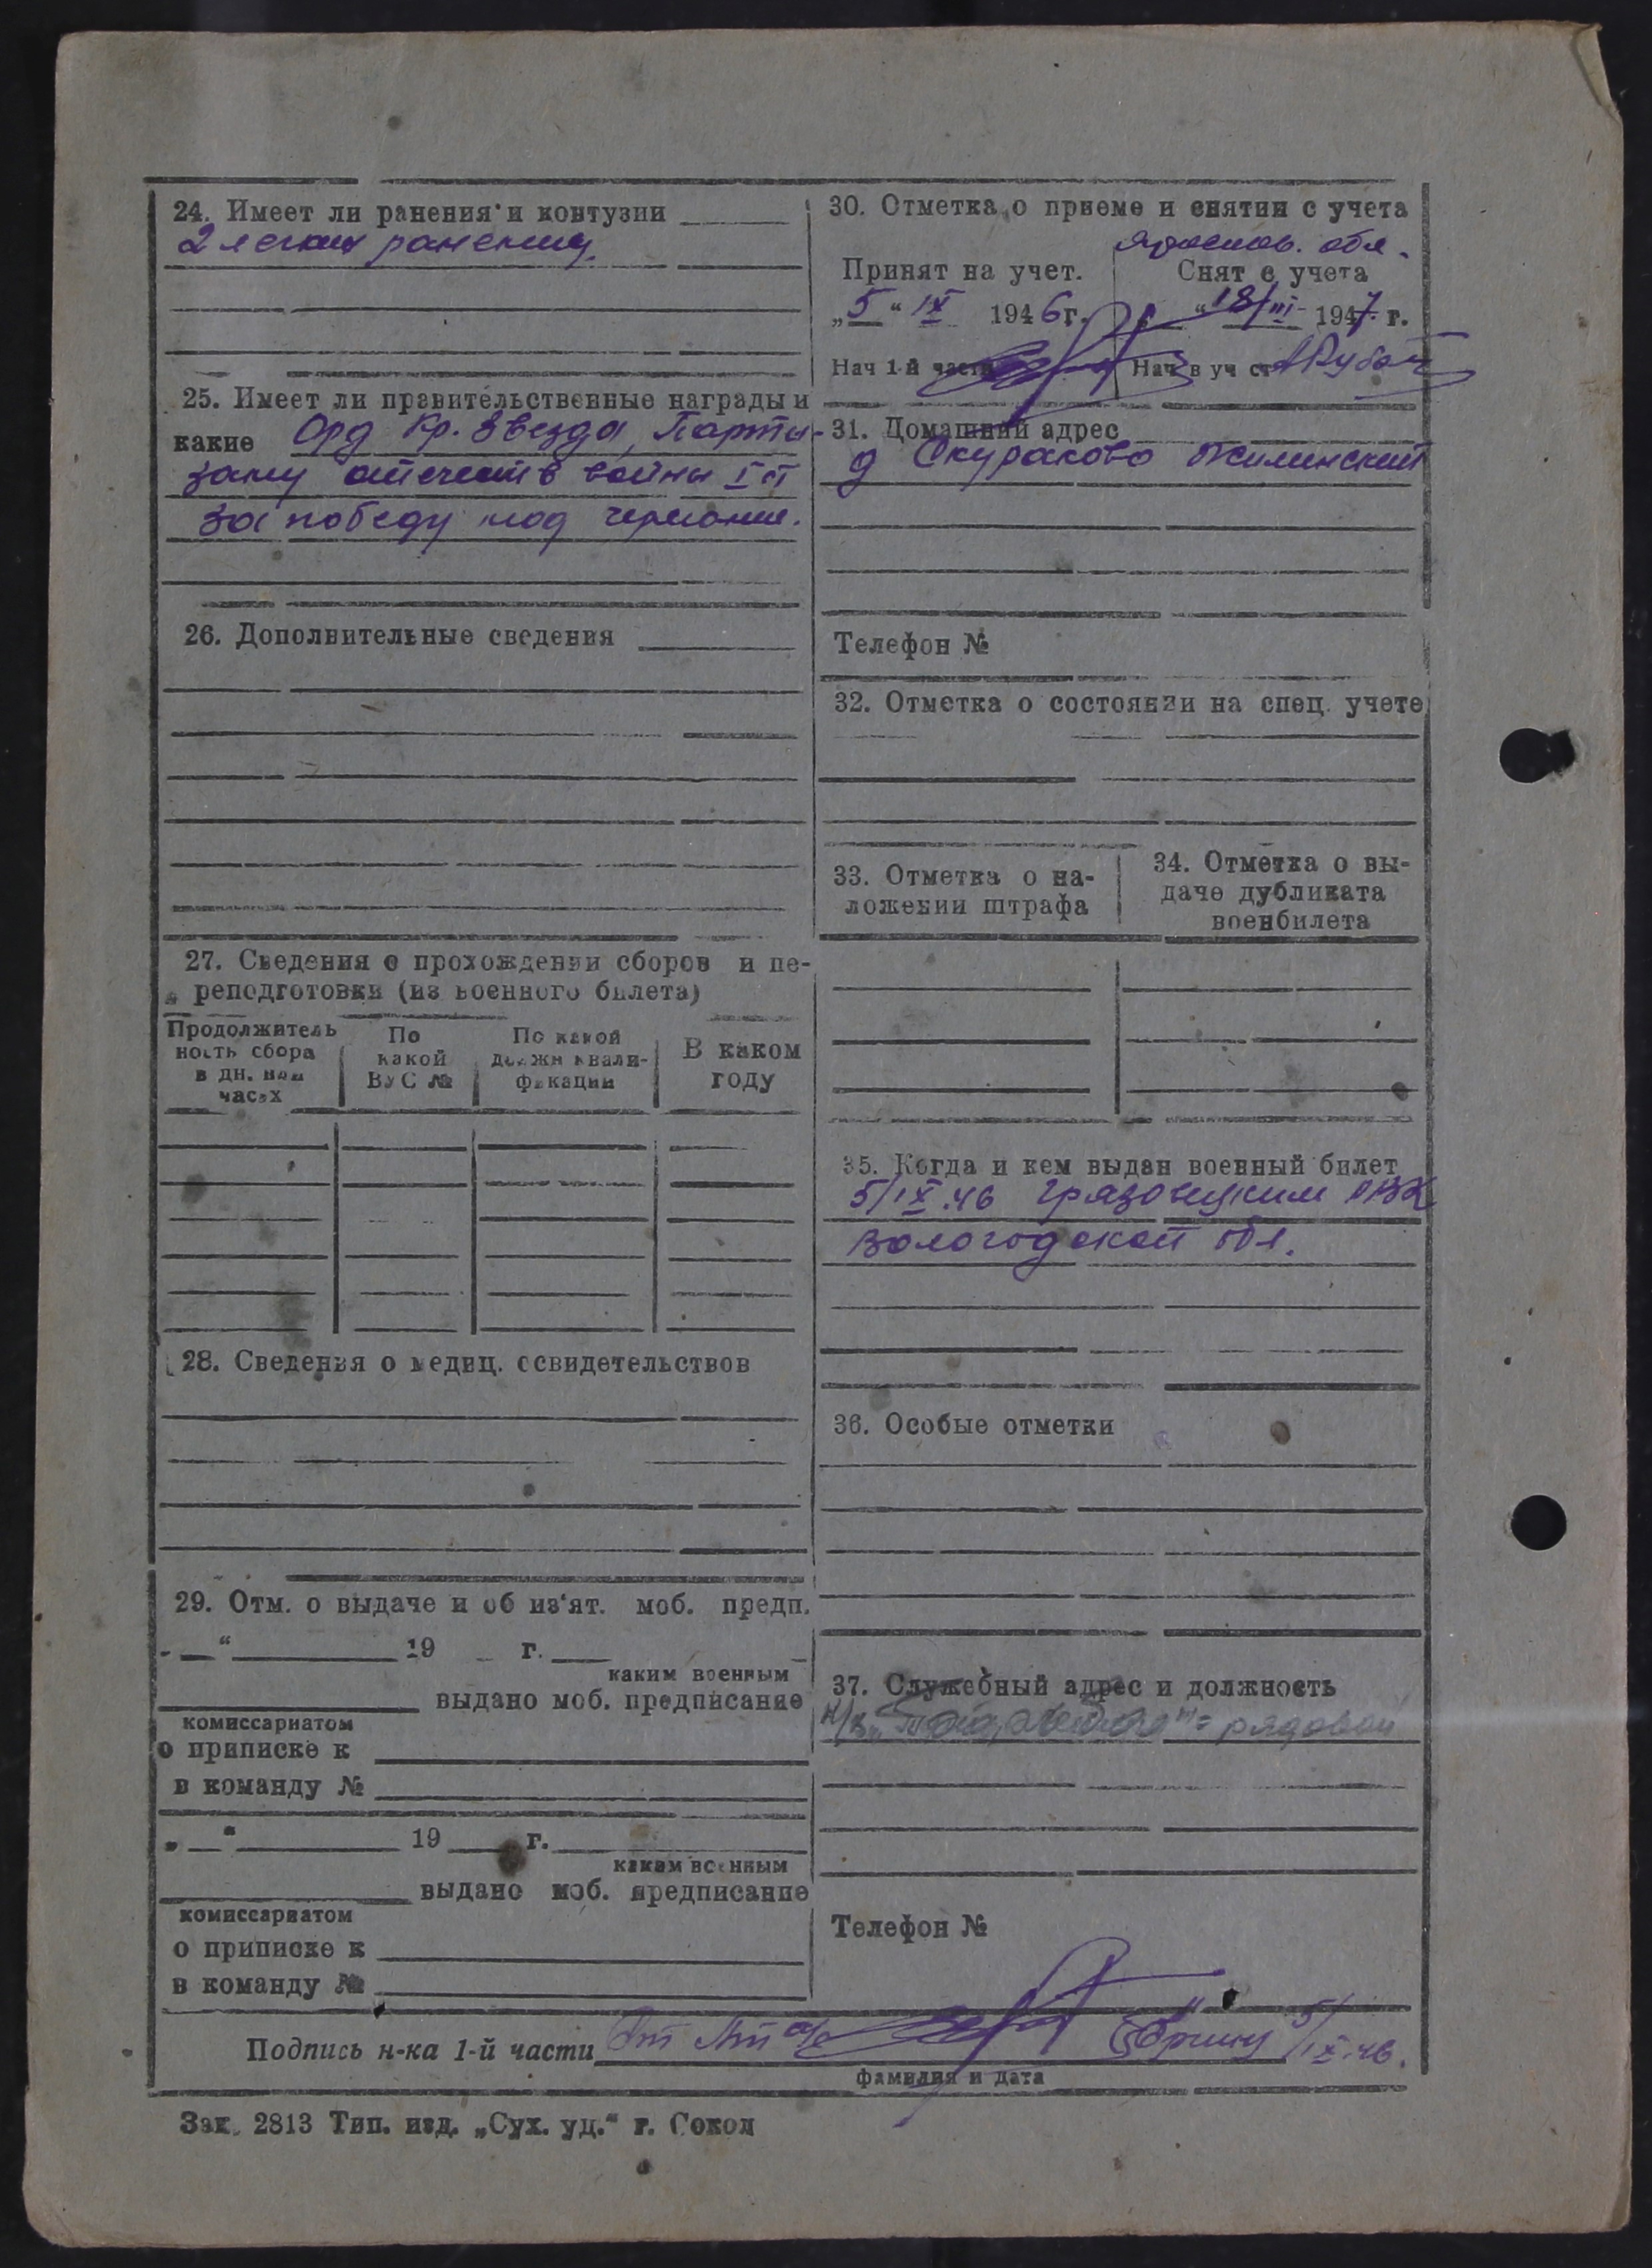 24. Имеет ли ранения и контузии
2 легких ранения.
25. Имеет ли правительственные награды и
какие Орд Кр. Звезда, Парти-
зану отечеств войны I ст
За победу над германие.
26. Дополнительные сведения
27. Сведения о прохождении сборов и пе-
реподготовки (из военного билета)
Продолжитель
ность сбора
в дн. или
часах
По
какой
ВУС №
По какой
должн квали-
фикации
В каком
году
28. Сведения о медиц. освидетельствов
29. Отм. о выдаче и об из'ят. моб. предп.
„ “ 19 г.
каким военным
выдано моб. предписание
комиссариатом
о приписке к
в команду №
„ “ 19 г.
каким военным
выдано моб. предписание
комиссариатом
о приписке к
в команду №
30. Отметка о приеме и снятии с учета
Ярослов. обл.
Принят на учет.
Снят с учета
„5“ IX 1946 г.
„18/III 1947 г.
Нач 1-й части
Нач в уч ст
31. Домашний адрес
д Скураково
Телефон №
32. Отметка о состоянии на спец. учете
33. Отметка о на-
ложении штрафа
34. Отметка о вы-
даче дубликата
военбилета
35. Когда и кем выдан военный билет
5/IX.46 Грязовецким РВК
Вологодской обл.
36. Особые отметки
37. Служебный адрес и должность
рядовой
Телефон №
Подпись н-ка 1-й части
5/IX.46.
фамилия и дата
Зак. 2813 Тип. изд. „Сух. уд.“ г. Сокол